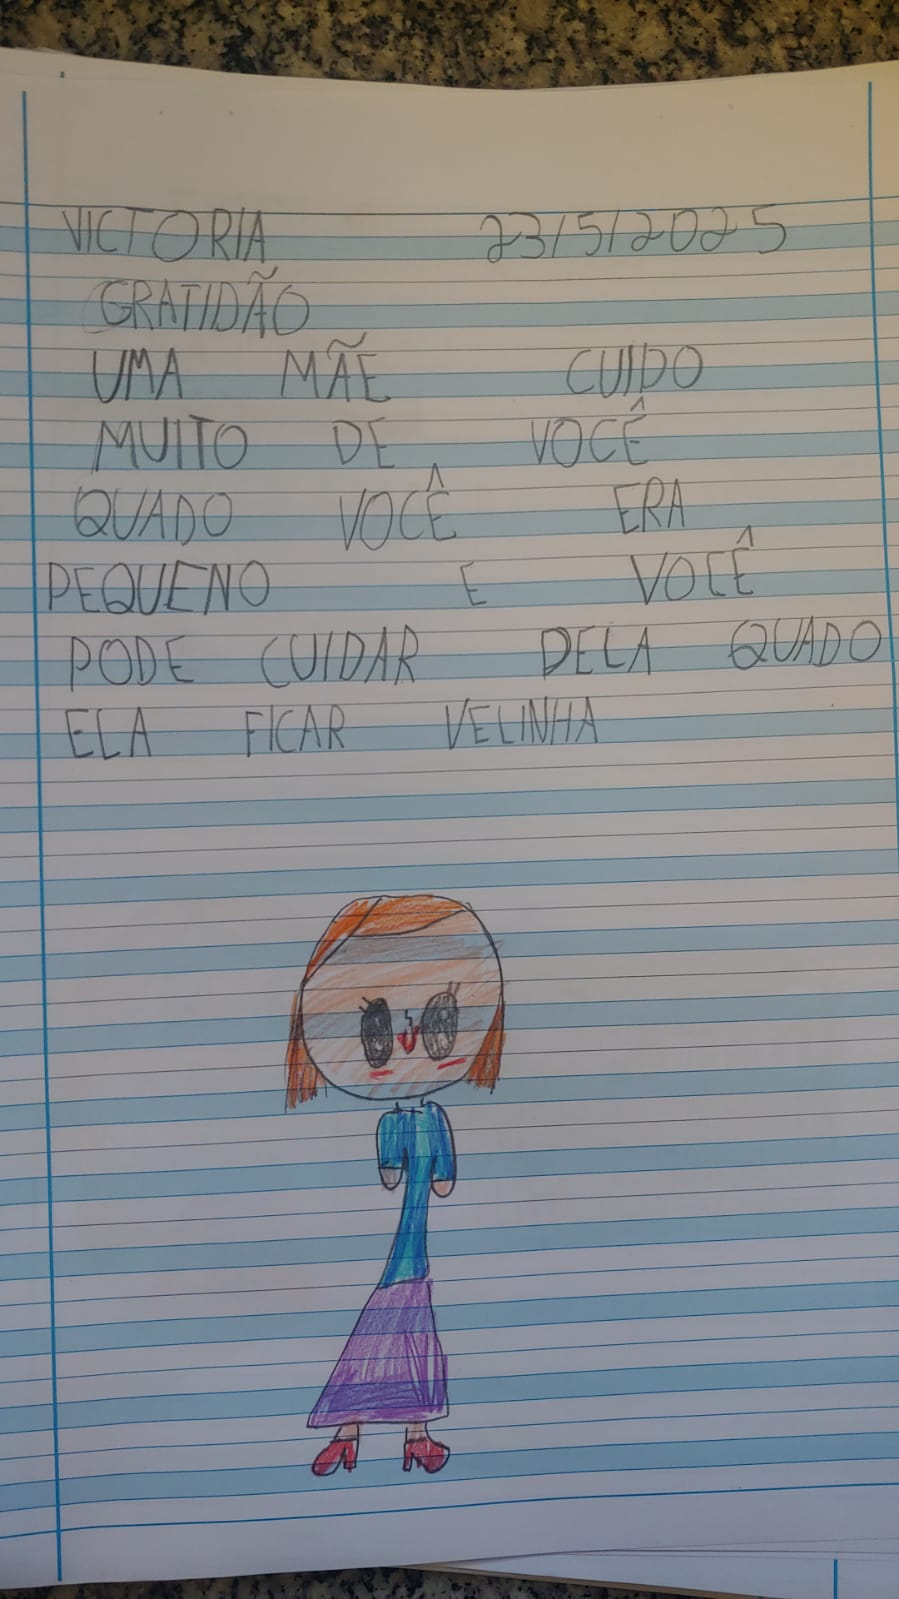 VICTORIA 23/5/2025
GRATIDÃO
UMA MÃE CUIDO
MUITO DE VOCÊ
QUADO VOCÊ ERA
PEQUENO E VOCÊ
PODE CUIDAR DELA QUADO
ELA FICAR VELINHA